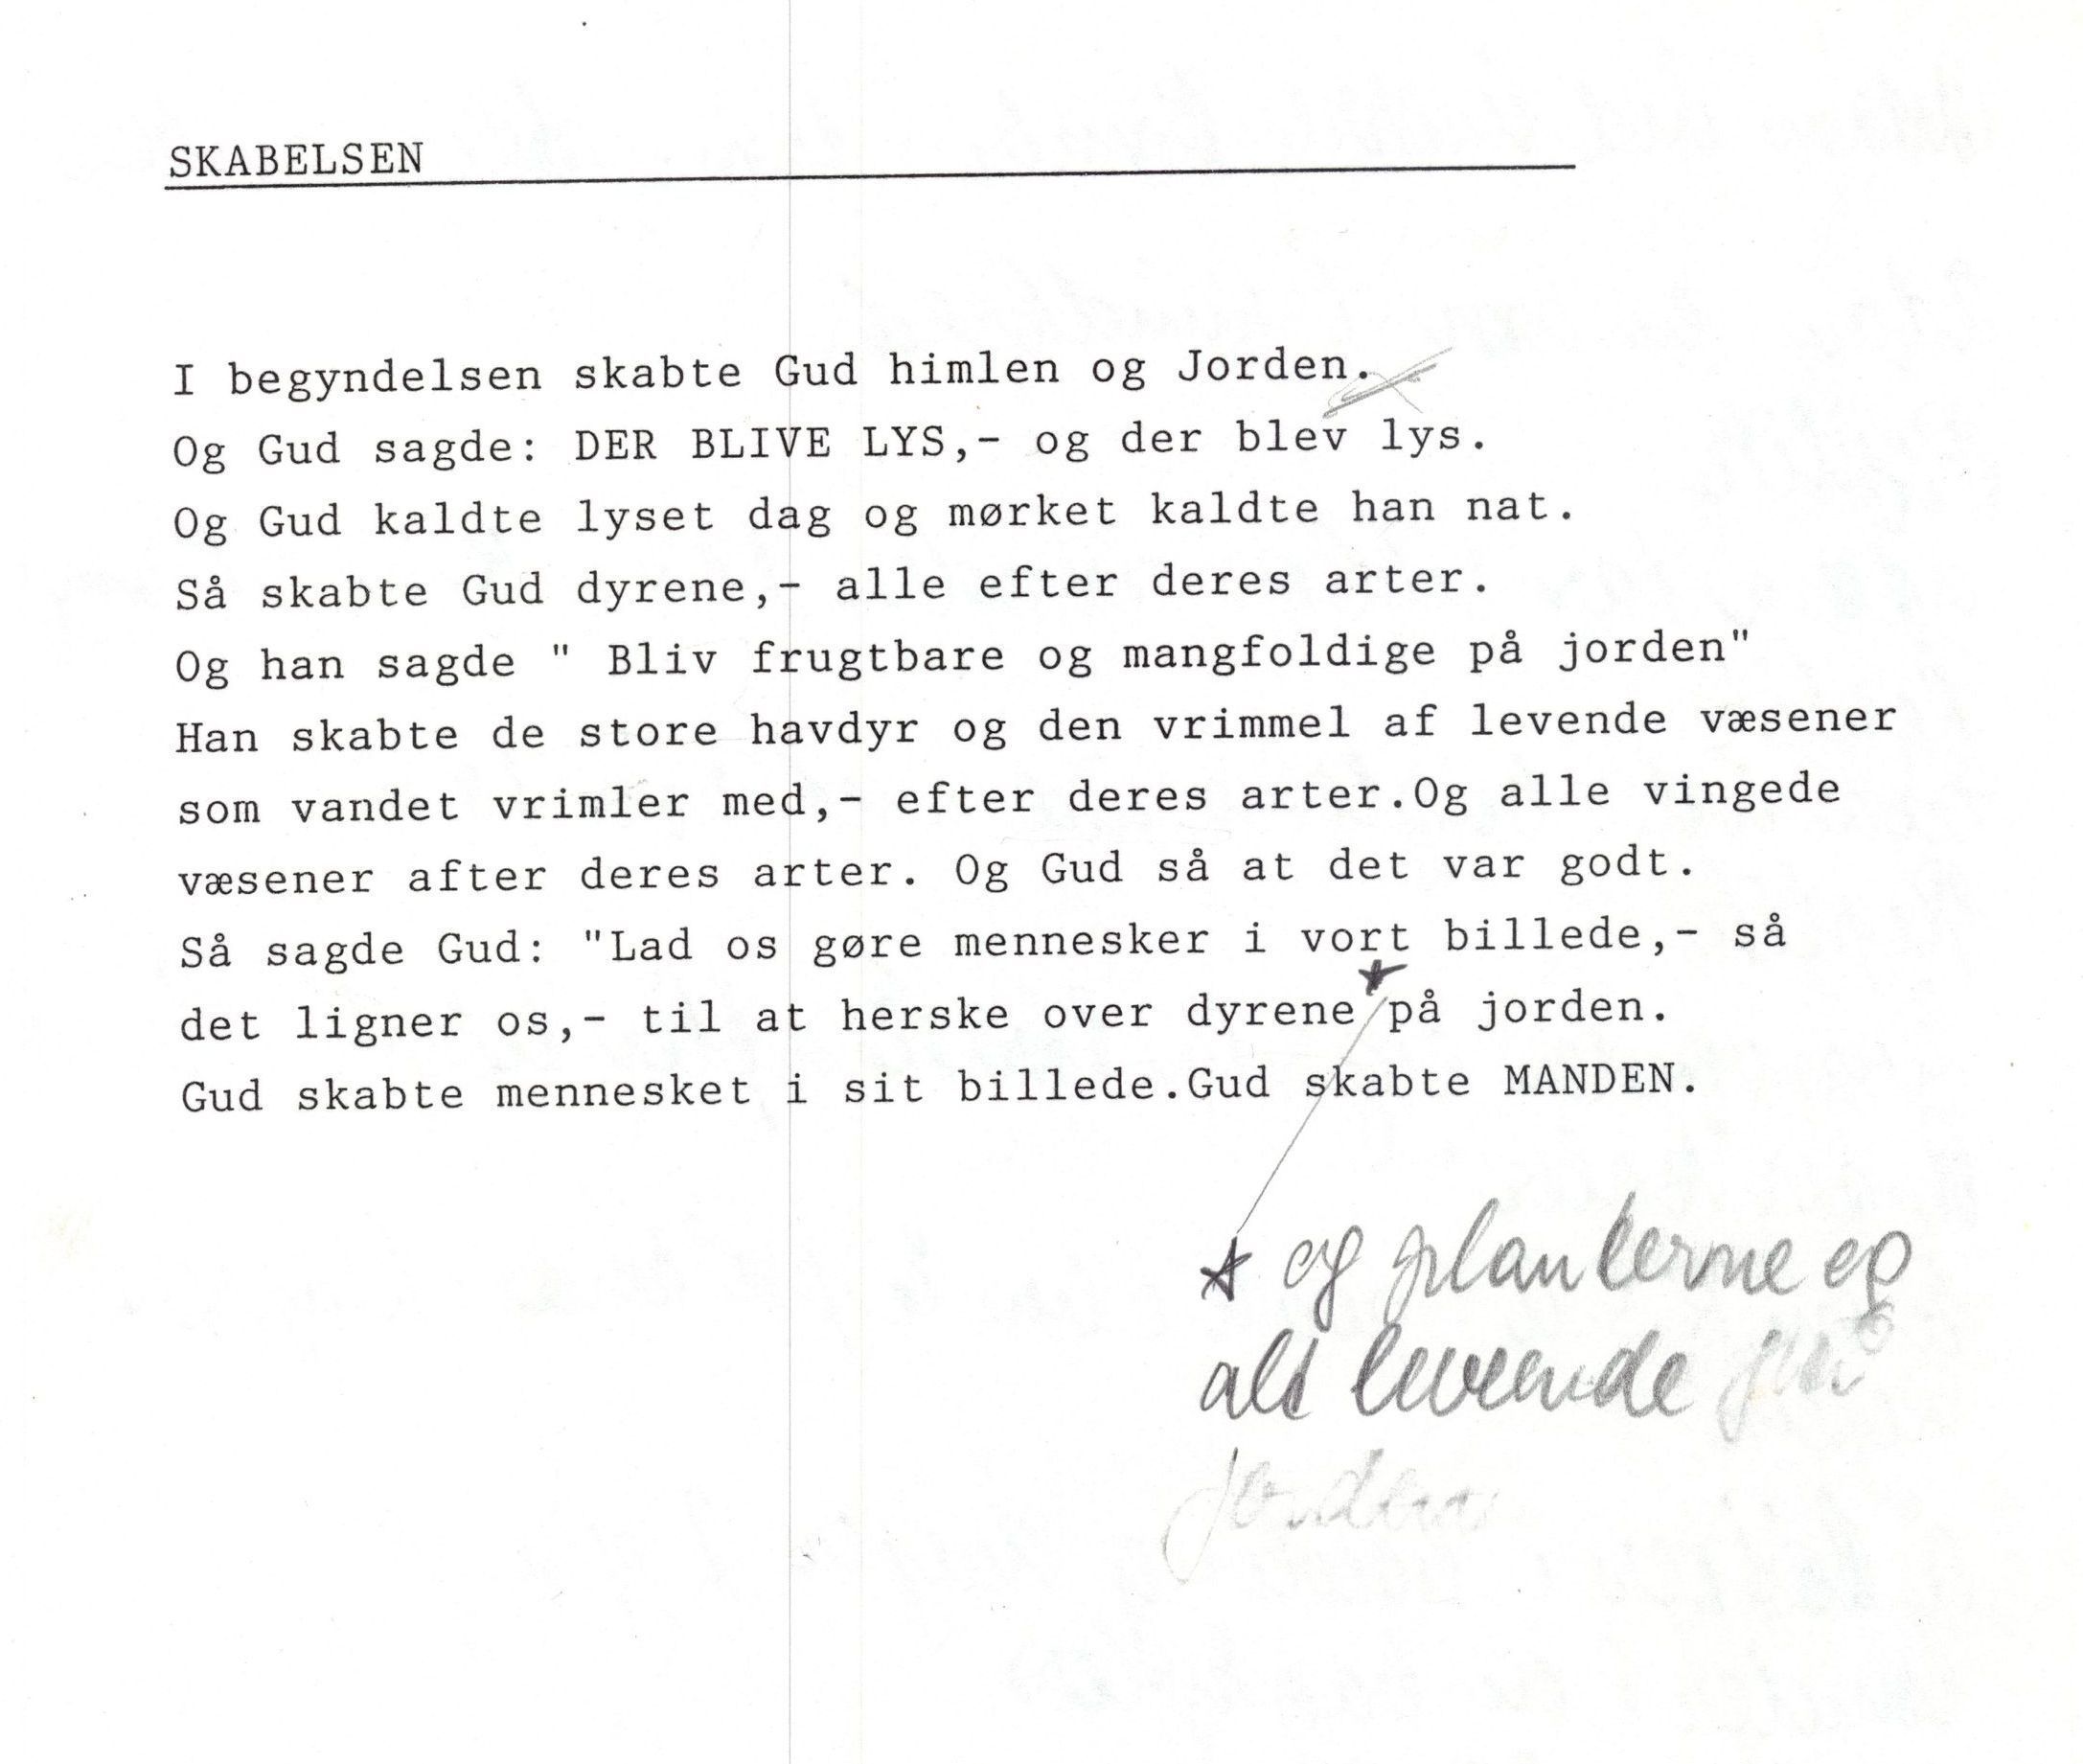 SKABELSEN
I begyndelsen skabte Gud himlen og Jorden.
Og Gud sagde: DER BLIVE LYS,- og der blev lys.
Og Gud kaldte lyset dag og mørket kaldte han nat.
Så skabte Gud dyrene,- alle efter deres arter.
Og han sagde " Bliv frugtbare og mangfoldige på jorden"
Han skabte de store havdyr og den vrimmel af levende væsener
som vandet vrimler med,- efter deres arter.Og alle vingede
væsener after deres arter. Og Gud så at det var godt.
Så sagde Gud: "Lad os gøre mennesker i vort billede,- så
det ligner os,- til at herske over dyrene * på jorden.
Gud skabte mennesket i sit billede.Gud skabte MANDEN.
* og planterne og
alt levende på
jorden